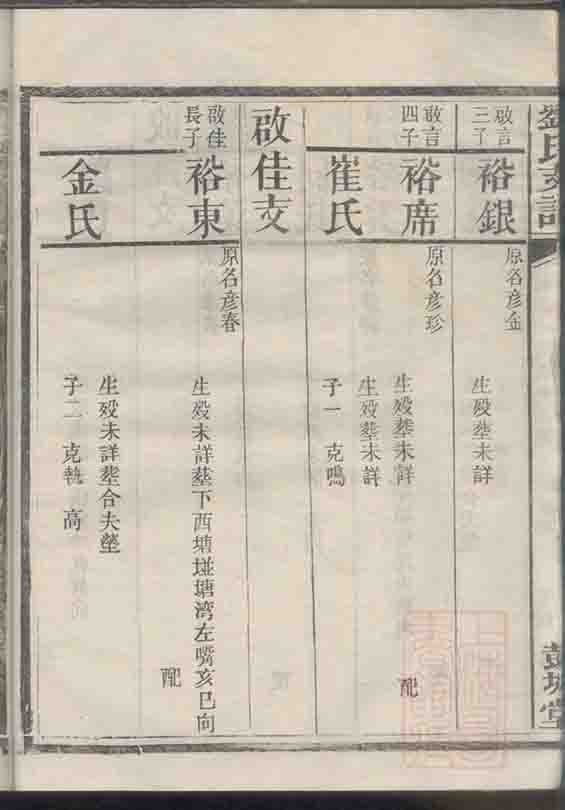 劉氏支譜
彭城堂
啟言
三子
裕銀
原名彥金
生殁塟未詳
啟言
四子
裕席
原名彥珍
生殁塟未詳
配
崔氏
生殁塟未詳
子一 克鳴
啟佳支
啟佳
長子
裕東
原名彥春
生殁未詳塟下西塘墶塘湾左嘴亥巳向
配
金氏
生殁未詳塟合夫塋
子二 克執 高